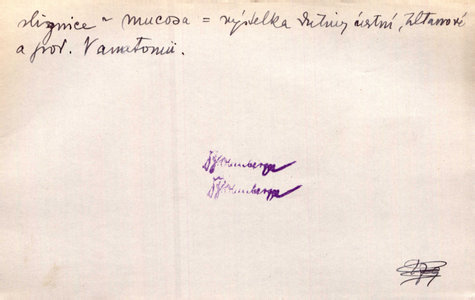 sliznice = mucosa = výstelka dutiny ústní, hltanové
a pod. V anatomii.